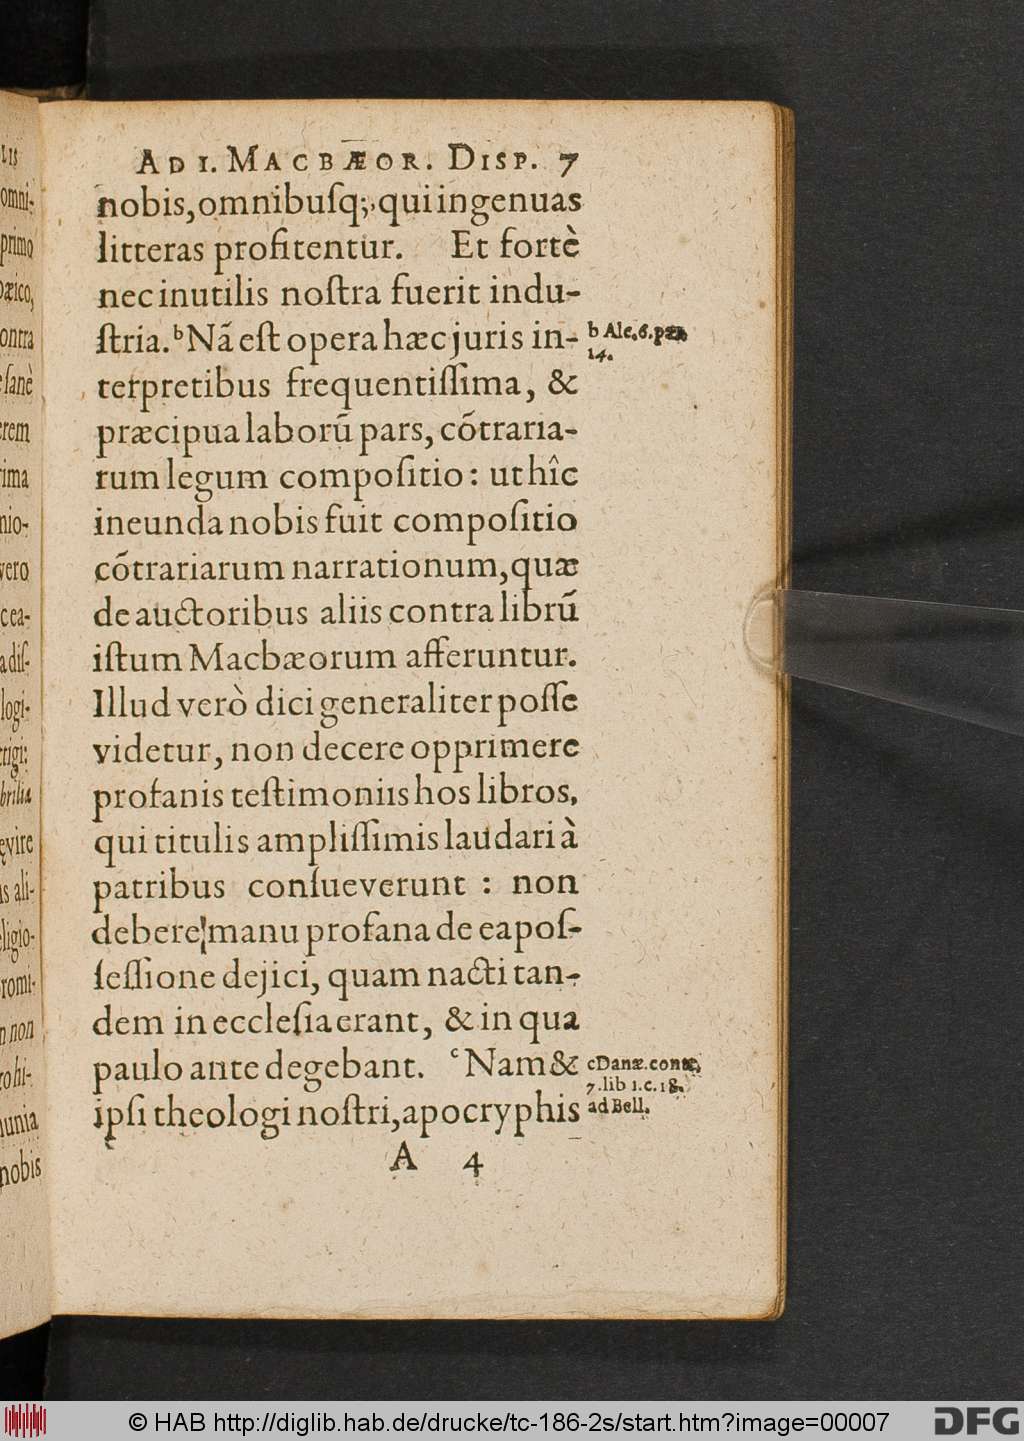 AD I. MACBÆOR. DISP. 7
nobis, omnibusq;, qui ingenuas
litteras profitentur. Et fortè
nec inutilis noſtra fuerit indu-
ſtria. ᵇ Nã eſt opera hæc juris in-
b Alc. 6. par.
14.
terpretibus frequentiſſima, &
præcipua laborũ pars, cõtraria-
rum legum compoſitio: ut hîc
ineunda nobis fuit compoſitio
cõtrariarum narrationum, quæ
de auctoribus aliis contra librũ
iſtum Macbæorum afferuntur.
Illud verò dici generaliter poſſe
videtur, non decere opprimere
profanis teſtimoniis hos libros,
qui titulis ampliſſimis laudari à
patribus conſueverunt : non
debere manu profana de ea poſ-
ſeſſione dejici, quam nacti tan-
dem in eccleſia erant, & in qua
paulo ante degebant. ᶜ Nam &
c Danæ. contr.
7. lib 1. c. 18.
ad Bell.
ipſi theologi noſtri, apocryphis
A 4
LIS
omni-
primo
bæico,
contra
ſanè
rem
rima
nio-
vero
cea-
adiſ-
logi-
rigi:
brilia
evire
s ali-
eligio-
romi-
n non
ohi-
unia
nobis
© HAB http://diglib.hab.de/drucke/tc-186-2s/start.htm?image=00007
DFG